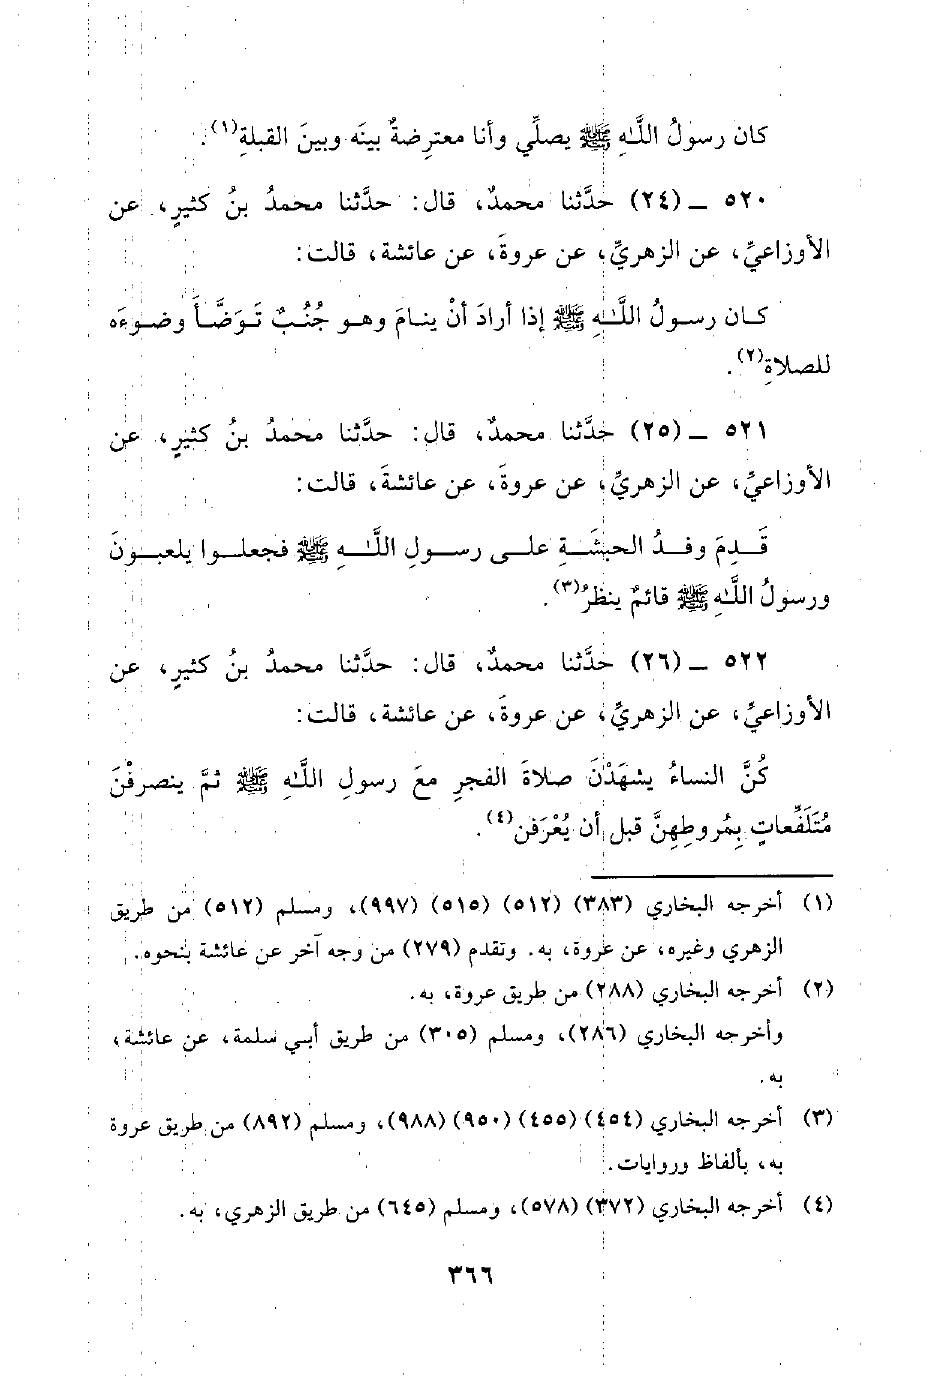 كان رسولُ اللَّهِ ﷺ يصلِّي وأنا معترِضةٌ بينَه وبينَ القبلةِ(١).
٥٢٠ ـ (٢٤) حدَّثنا محمدٌ، قال: حدَّثنا محمدُ بنُ كثيرٍ، عن
الأوزاعيِّ، عن الزهريِّ، عن عروةَ، عن عائشة، قالت:
كان رسولُ اللَّهِ ﷺ إذا أرادَ أنْ ينامَ وهو جُنُبٌ تَوَضَّأَ وضوءَه
للصلاةِ(٢).
٥٢١ ـ (٢٥) حدَّثنا محمدٌ، قال: حدَّثنا محمدُ بنُ كثيرٍ، عن
الأوزاعيِّ، عن الزهريِّ، عن عروةَ، عن عائشةَ، قالت:
قَدِمَ وفدُ الحبشَةِ على رسولِ اللَّهِ ﷺ فجعلوا يلعبونَ
ورسولُ اللَّهِ ﷺ قائمٌ ينظرُ(٣).
٥٢٢ ـ (٢٦) حدَّثنا محمدٌ، قال: حدَّثنا محمدُ بنُ كثيرٍ، عن
الأوزاعيِّ، عن الزهريِّ، عن عروةَ، عن عائشة، قالت:
كُنَّ النساءُ يشهَدْنَ صلاةَ الفجرِ معَ رسولِ اللَّهِ ﷺ ثمَّ ينصرفْنَ
مُتَلَفِّعاتٍ بِمُروطِهِنَّ قبل أن يُعْرَفن(٤).
(١) أخرجه البخاري (٣٨٣) (٥١٢) (٥١٥) (٩٩٧)، ومسلم (٥١٢) من طريق
الزهري وغيره، عن عروة، به. وتقدم (٢٧٩) من وجه آخر عن عائشة بنحوه.
(٢) أخرجه البخاري (٢٨٨) من طريق عروة، به.
وأخرجه البخاري (٢٨٦)، ومسلم (٣٠٥) من طريق أبي سلمة، عن عائشة،
به.
(٣) أخرجه البخاري (٤٥٤) (٤٥٥) (٩٥٠) (٩٨٨)، ومسلم (٨٩٢) من طريق عروة
به، بألفاظ وروايات.
(٤) أخرجه البخاري (٣٧٢) (٥٧٨)، ومسلم (٦٤٥) من طريق الزهري، به.
٣٦٦